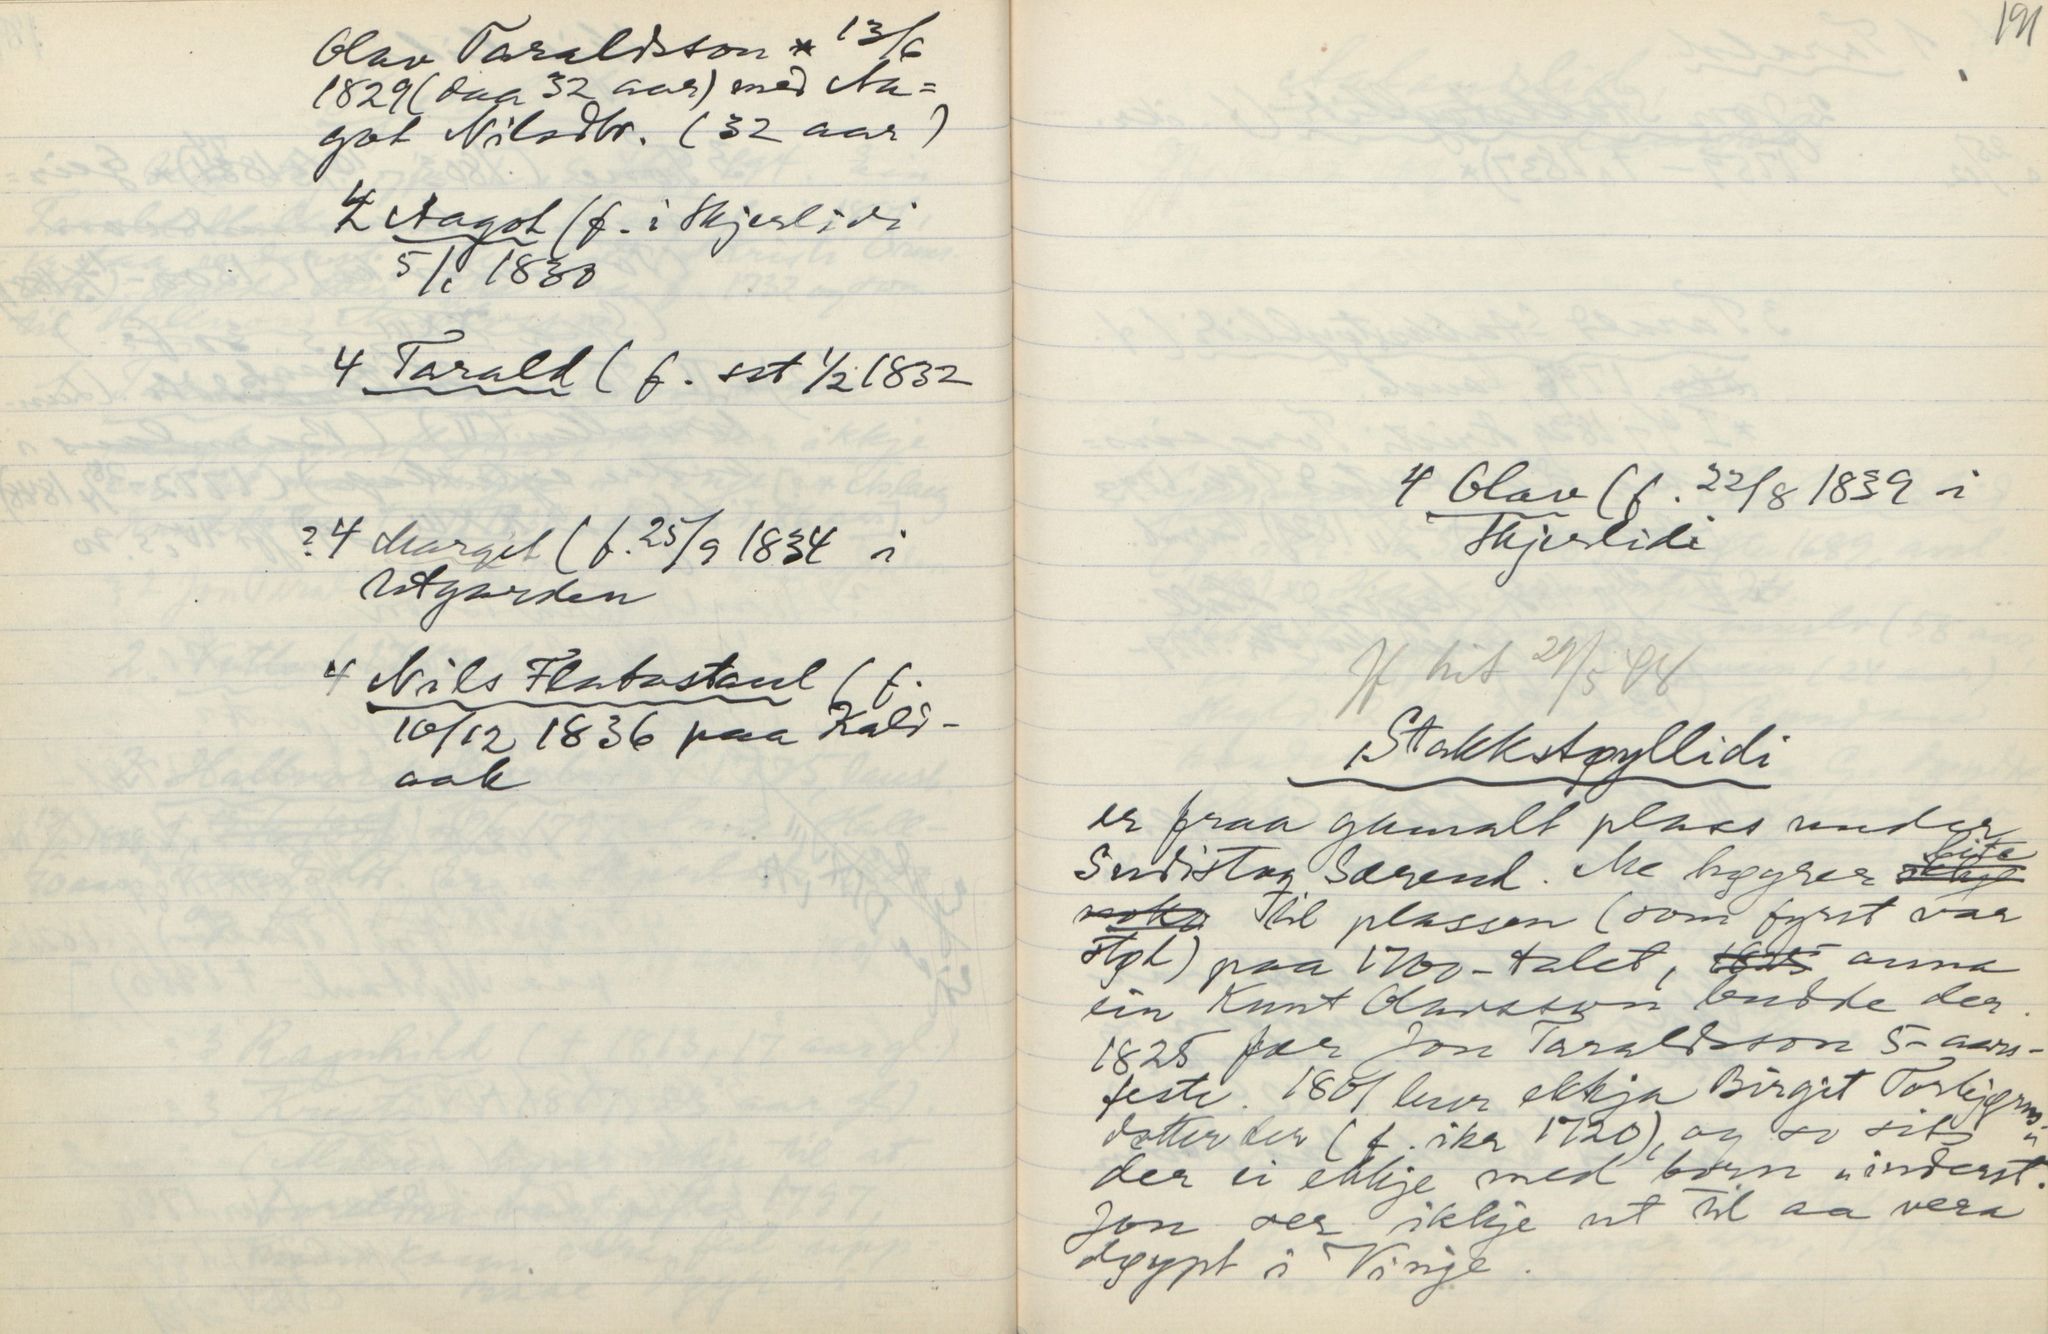 Olav Taraldsson * 13/6
1829 (daa 32 aar) med Aa=
got Nilsdtr. (32 aar)
4 Aagot (f. i Skjerlidi
5/1 1830
4 Tarald (f. sst 1/2 1832
? 4 Margit (f. 25/9 1834 i
Utgarden
4 Nils Flatastaul (f.
10/12 1836 paa Kald-
aak
191
4 Olav (f. 22/8 1839 i
Skjerlidi
hit 29/5 48
Stakkstøyllidi
er fraa gamalt plass under
Sudistog Særend. Me høyrer lite
noko til plassen (som fyrst var
støl) paa 1700-talet, 1825 anna
ein Knut Olavsson budde der.
1825 fær Jon Taraldsson 5-aars-
feste. 1801 bur ekkja Birgit Torbjørns-
dotter der (f. ikr 1720), og so sit
der ei ekkje med born "inderst".
Jon ser ikkje ut til aa vera
døypt i Vinje.